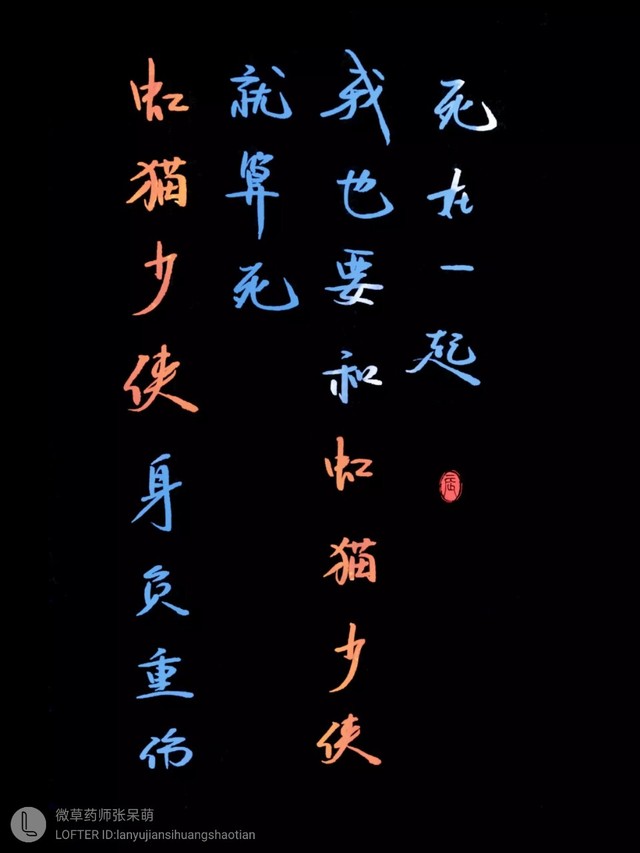 虹猫少侠身负重伤
就算死
我也要和虹猫少侠
死在一起
辰
微草药师张呆萌
LOFTER ID:lanyujiansihuangshaotian